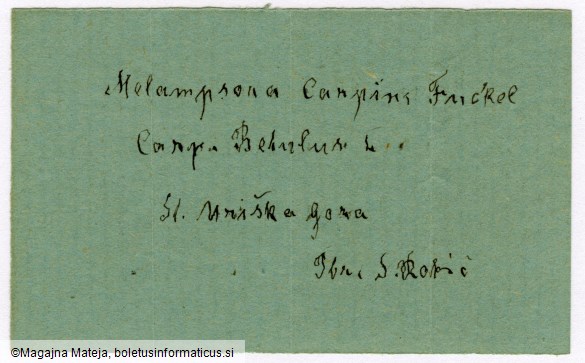 Melampsora Carpini Fuckel
Carp. Betulus L.
St. Uriška gora
©Magajna Mateja, boletusinformaticus.si